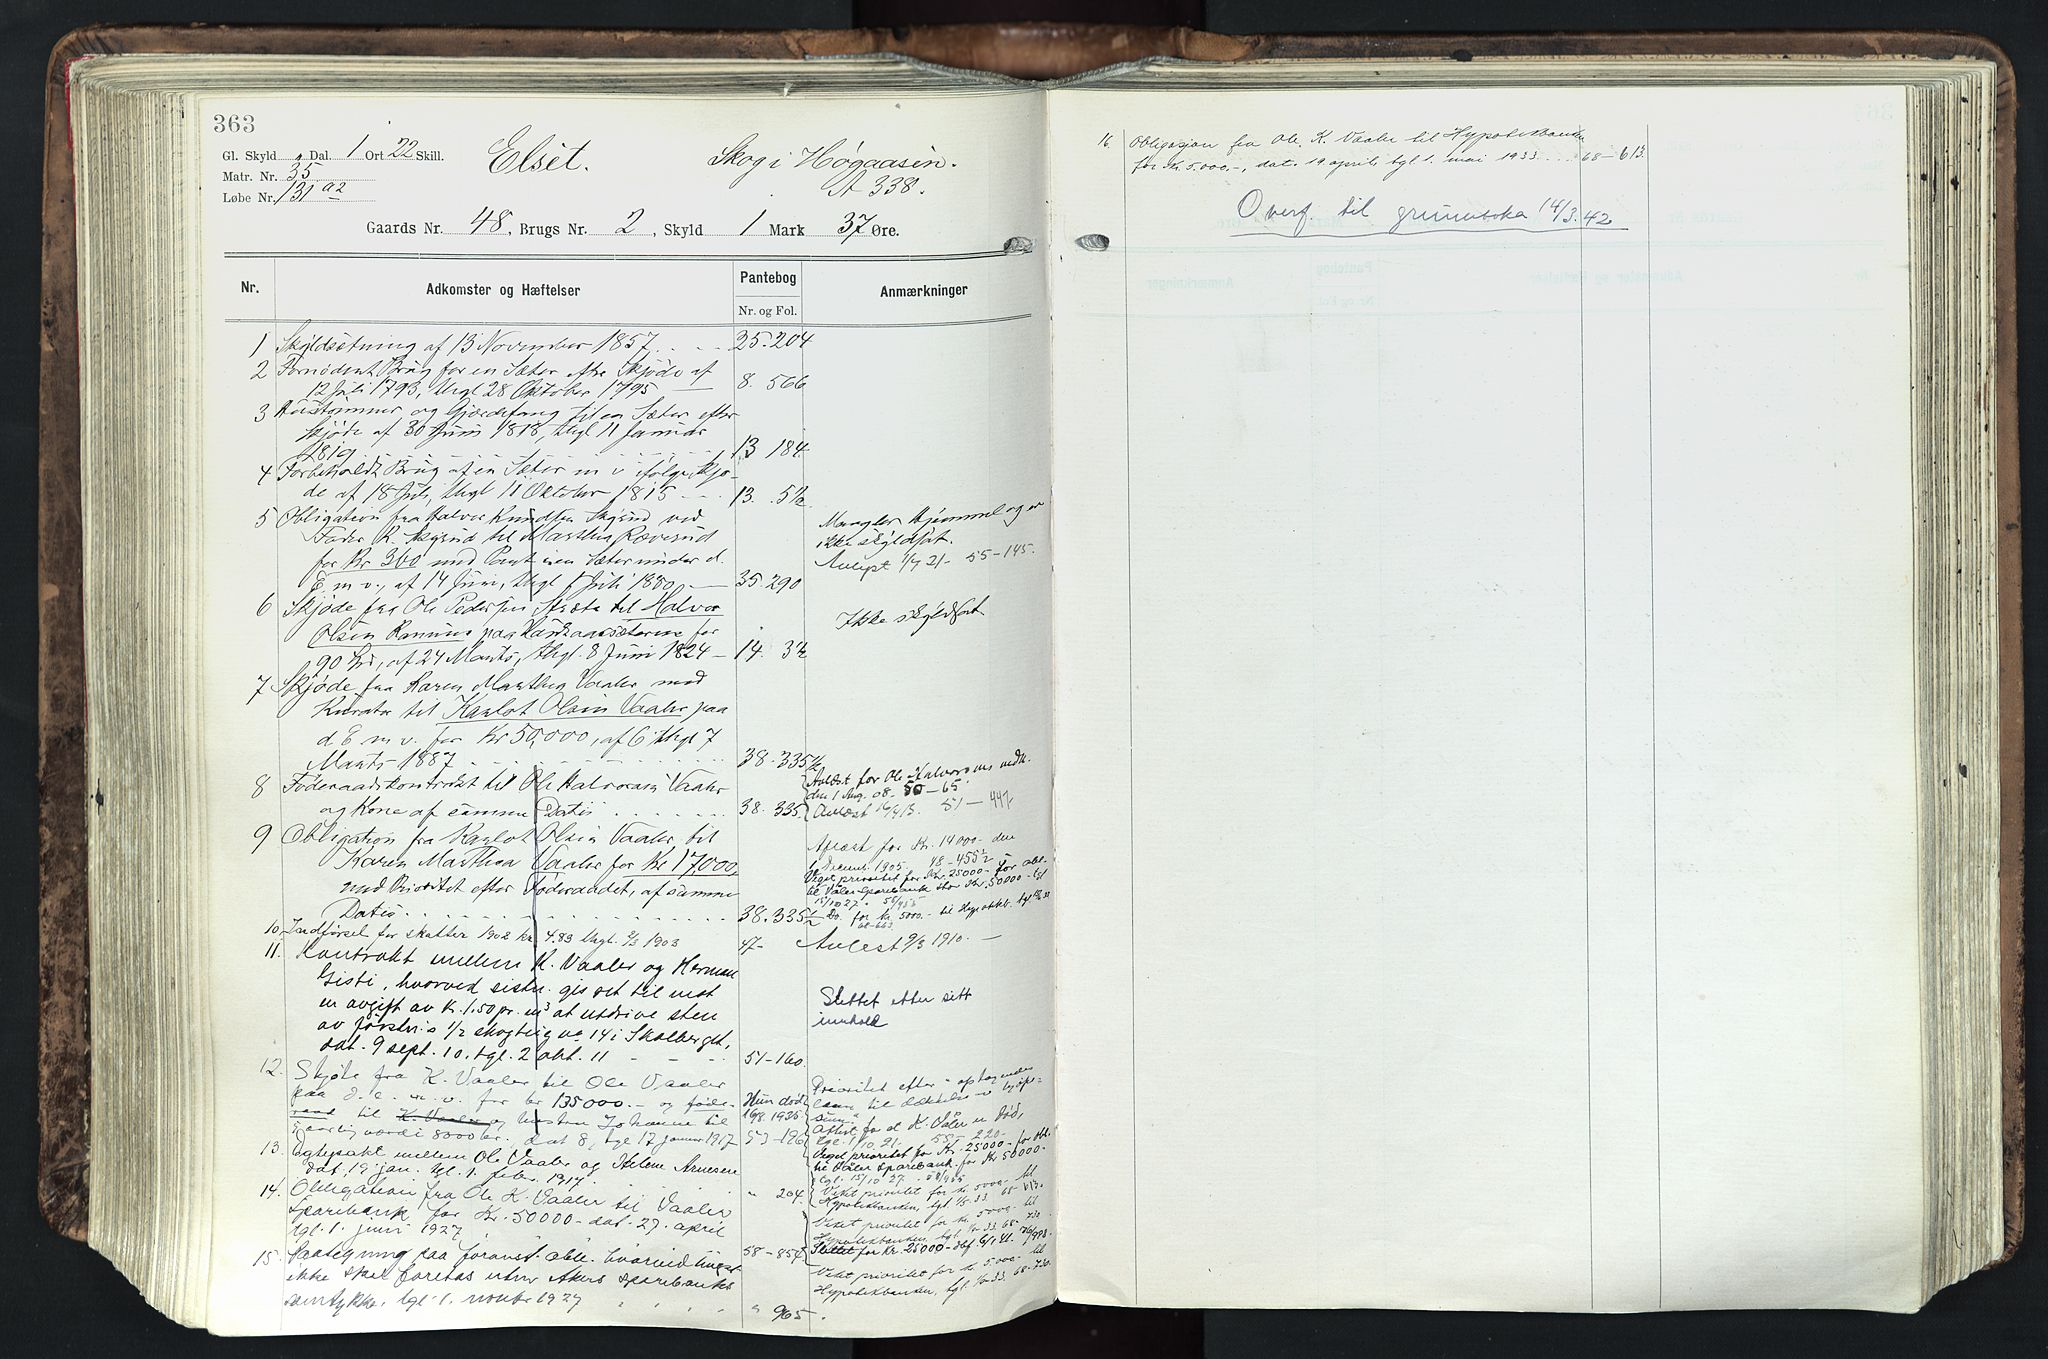 363
Gl. Skyld Dal. 1 Ort 22 Skill.
Elset.
Skog i Høgaasen.
Matr. Nr. 35
A 338.
Løbe Nr. 131 a2
Gaards Nr. 48, Brugs Nr. 2, Skyld 1 Mark 37 Øre.
Nr.
Adkomster og Hæftelser
Pantebog
Nr. og Fol.
Anmærkninger
1 Skyldsætning af 13 November 1857 25. 204
2 Fornødent Brug for en Sæter efter Skjøde af
12 Juli 1793, thgl 28 Oktober 1795 8. 566
3 og Gjærdefang til en Sæter efter
Skjøde af 30 Juni 1818, thgl 11 Januar
1819 13 184
4 Forbeholdt Brug af en Sæter m v ifølge Skjø-
de af 18 Juli, thgl 11 Oktober 1815 13. 5 1/2
5 Obligation fra Halvor Knudsen Skjsrud ved
Fader K. til Marthea Ræverud
for Kr 360 med Pant i en Sæter under d.
E. m v., af 14 Juni, thgl 1 Juli 1880 35. 290
Mangler Hjemmel og er
ikke skyldsat.
Avlyst 1/7 21 - 55-145.
6 Skjøde fra Ole Pedersen til Halvor
Olsen paa for
90 Spd, af 24 Marts, thgl. 8 Juni 1824 14. 3 1/2
Ikke skyldsat
7 Skjøde fra Karen Marthea Vaaler med
Kurator til Karlot Olsen Vaaler, paa
d. E m v. for Kr 50,000, af 6 thgl 7
Marts 1887 38. 335 1/2
8 Føderaadskontrakt til Ole Halvorsen Vaaler
og Kone af samme Datis 38. 335
Avlæst for Ole Halvorsens vedk.
den 1 Aug. 08. 50-65.
Avlæst 16/4 13. 51-447
9 Obligation fra Karlot Olsen Vaaler til
Karen Marthea Vaaler for Kr 17,000,
med Prioritet efter Føderaadet, af samme
Datis 38. 335 1/2
Aflæst for Kr. 14000.- den
Decemr. 1905. 48-455 1/2
Veget prioritet for Kr. 25000 - for obl.
til Våler Sparebank stor Kr. 50000 - tgl
15/10 27. 58/955
Do. for kr. 5000.- til Hypotekb. tgl
68-663.
10. Indførsel for skatter 1902 kr. 4.83 thgl. 2/3 1903 47- Avlest 9/3 1910.
11. Kontrakt mellem K. Vaaler og Herman
Gisti, hvorved sistn. gis ret til mot
en avgift av kr. 1.50 pr. m3 at utdrive sten
av 1/2 skogteig no 14 i Skolberget,
dat. 9 sept. 10. tgl. 2 okt. 11 51-160
Slettet efter sitt
innhold
12. Skjøte fra K. Vaaler til Ole Vaaler
paa d. e. m. v. for kr 135000.- og føde-
raad til K. Vaaler og hustru Johanne til
aarlig værdi 8000 kr. dat 8, tgl 17 januar 1917 53-196
Hun død
16/8 1935
Prioritet efter optagende
laan til dækkelse av kjøpe-
summen
Attest for at K. Våler er død,
tgl. 1/10 21. 55-220
Veget prioritet for Kr. 25000 - for obl.
til Våler Sparebank for Kr 50000-
tgl. 15/10 27. 58/955
13. Egtepakt mellem Ole Vaaler og Helene Arnesen
dat. 19 jan. tgl. 1. febr. 1917. " 204
Veket prioritet for kr. 5000.- til
Hypotekbanken, tgl. 1/5 33. 68-613.
14. Obligation fra Ole K. Vaaler til Vaaler
Sparebank for Kr. 50000 - dat. 27. april
tgl. 1. juni 1927 58-854
Veket prioritet for kr. 5000.- til
Hypotekbanken, tgl. 33. 68-730
Slettet for Kr. 25000
15. Paategning paa foranst. obl. hvorved
ikke skal foretas uten Akers sparebanks
samtykke, tgl. 1. novbr 1927 " 965.
Veket prioritet for kr 5.000.- til
Hypotekbanken, tgl 33. 68-730.
16. Obligasjon fra Ole K. Vaaler til Hypotekbanken
for Kr. 5.000.-, dat. 19 april, tgl 1. mai 1933 68-613.
Overf. til grunnboka 14/3.42